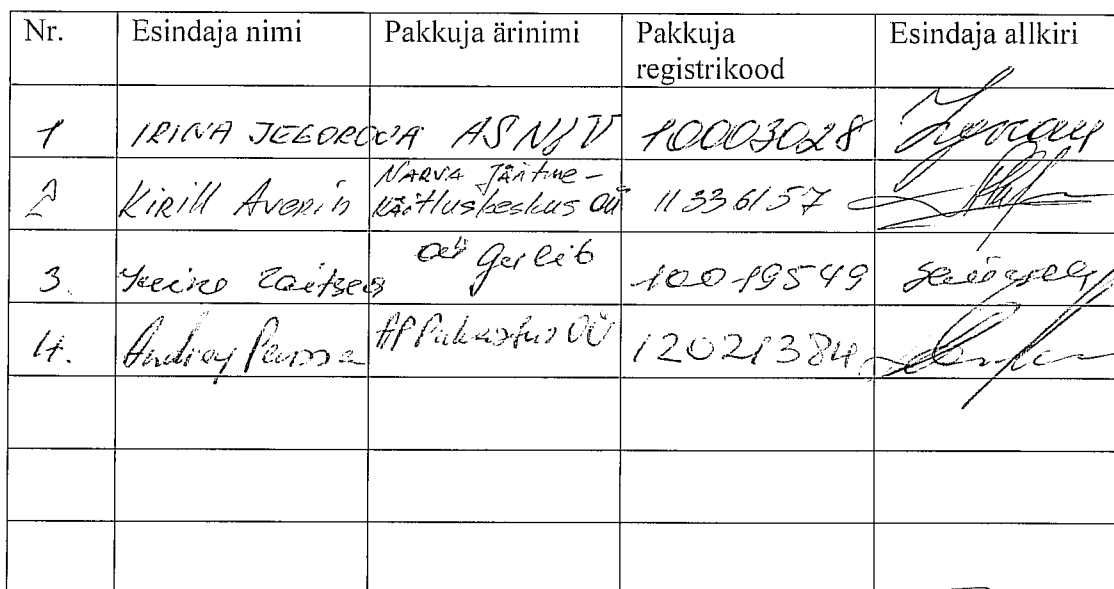 Nr. Esindaja nimi Pakkuja ärinimi Pakkuja registrikood Esindaja allkiri
1 IRINA JEGOROVA AS NJV 10003028
2 Kirill Averin NARVA Jäätme-
käitluskeskus OÜ 11336157
3. Zaitsev OÜ 10019549
4. Andrey OÜ 12021384